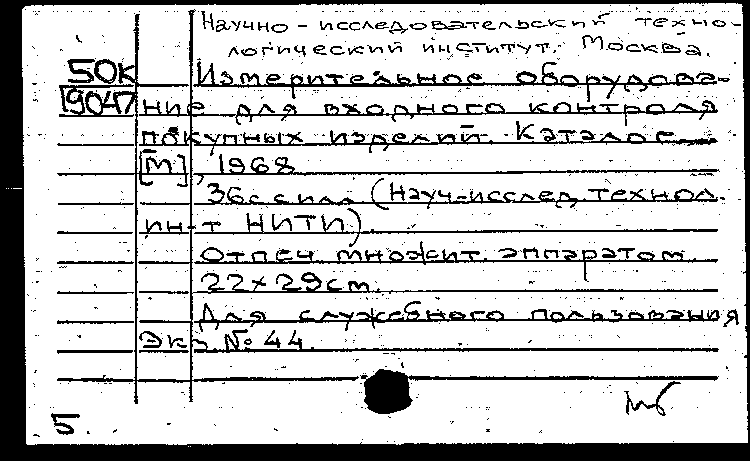 Научно-исследовательский техно-
логический институт. Москва.
50к Измерительное оборудова-
19047 ние для входного контроля
покупных изделий. Каталог.
[М], 1968
36с с илл. (Науч-исслед, технол.
ин-т НИТИ).
Отпеч. множит. аппаратом.
22×29см.
Для служебного пользования
Экз № 44.
5.